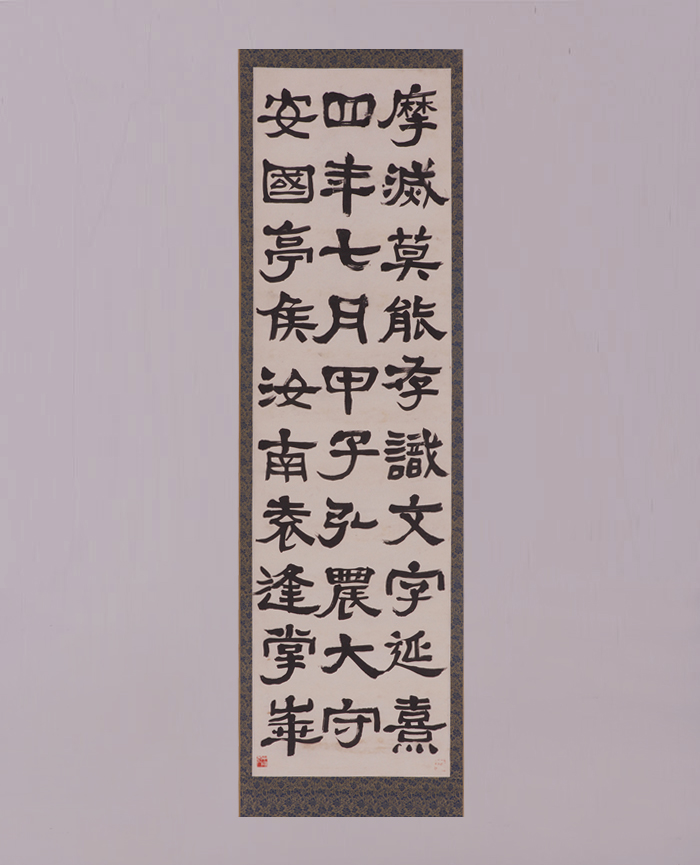 摩滅莫能存識文字延熹
四年七月甲子弘農大守
安國亭侯汝南袁逢掌崋